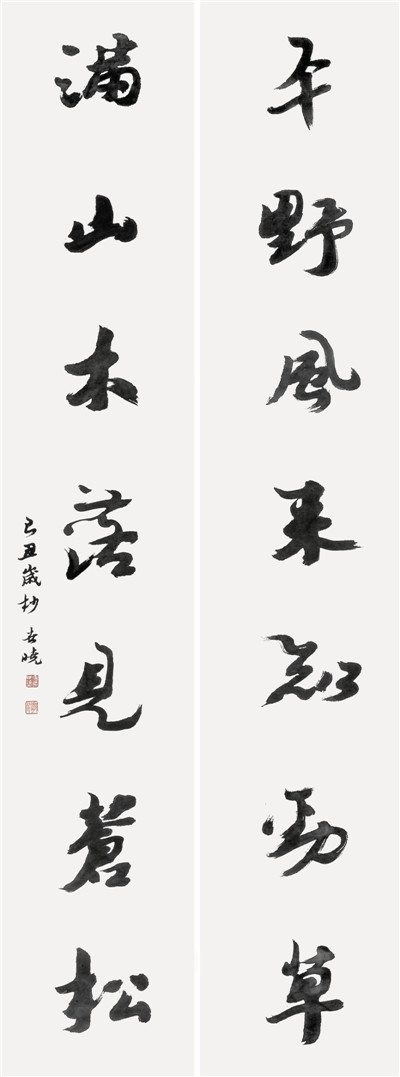 平野風來知勁草
滿山木落見蒼松
己丑歲杪 世曉